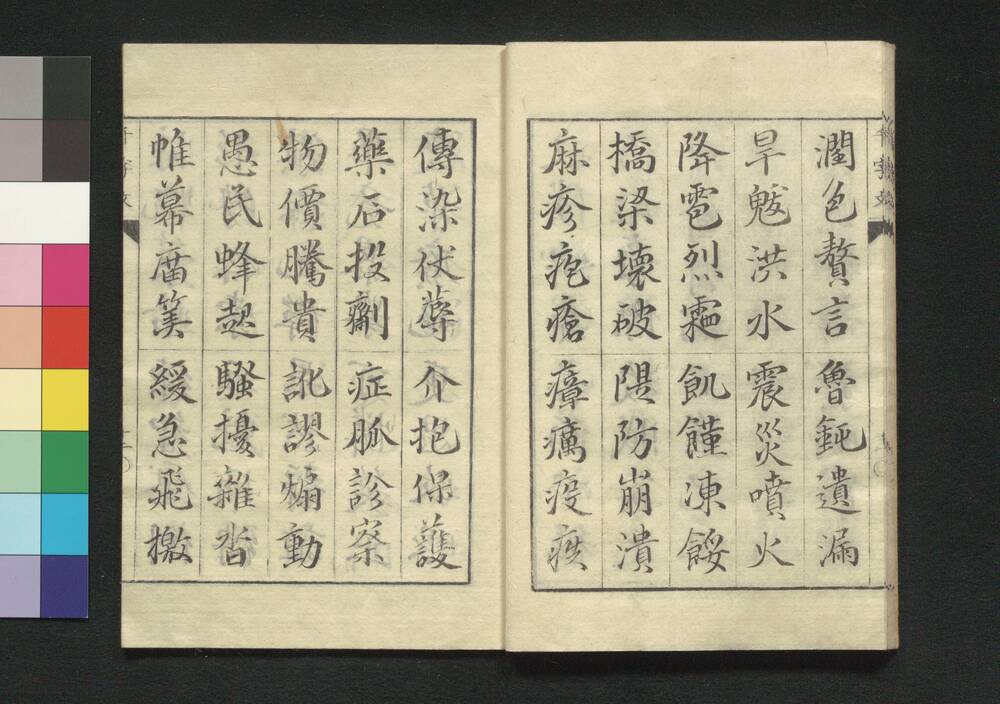 潤色贅言魯鈍遺漏
旱魃洪水震災噴火
降雹烈霜飢饉凍餒
橋梁壊破隄防崩潰
麻疹疱瘡瘴癘疫疾
傳染伏蓐介抱保護
藥石投劑症脈診察
物價騰貴訛謬煽動
愚民蜂起騷擾雜沓
帷幕廟筭緩急飛檄